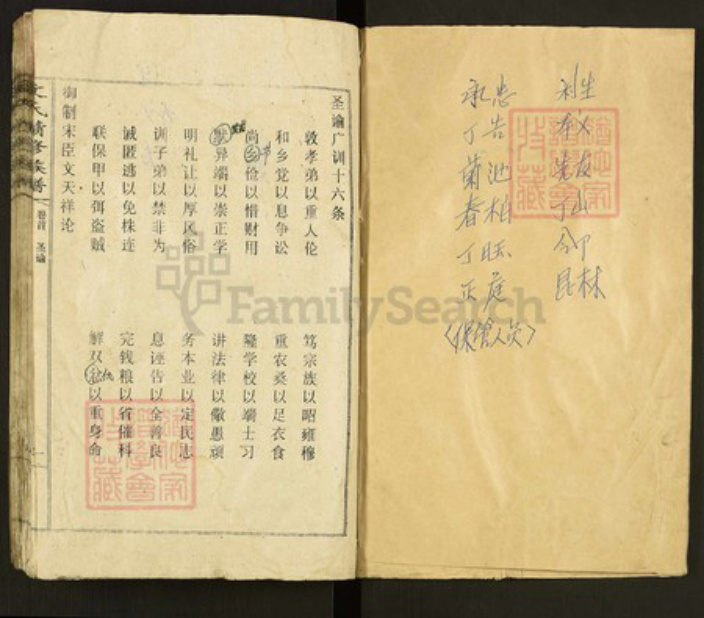 利生
本义
先友
丁山
昆林
承忠
丁告
菊池
春柏
丁旺
正庭
圣谕广训十六条
敦孝弟以重人伦 笃宗族以昭雍穆
和乡党以息争讼 重农桑以足衣食
尚乡俭以惜财用 隆学校以端士习
异端以崇正学 讲法律以儆愚顽
明礼让以厚风俗 务本业以定民志
训子弟以禁非为 息诬告以全善良
诫匿逃以免株连 完钱粮以省催科
联保甲以弭盗贼 解双以重身命
仇
御制宋臣文天祥论
文氏续修族谱 卷首 圣谕
一
FamilySearch